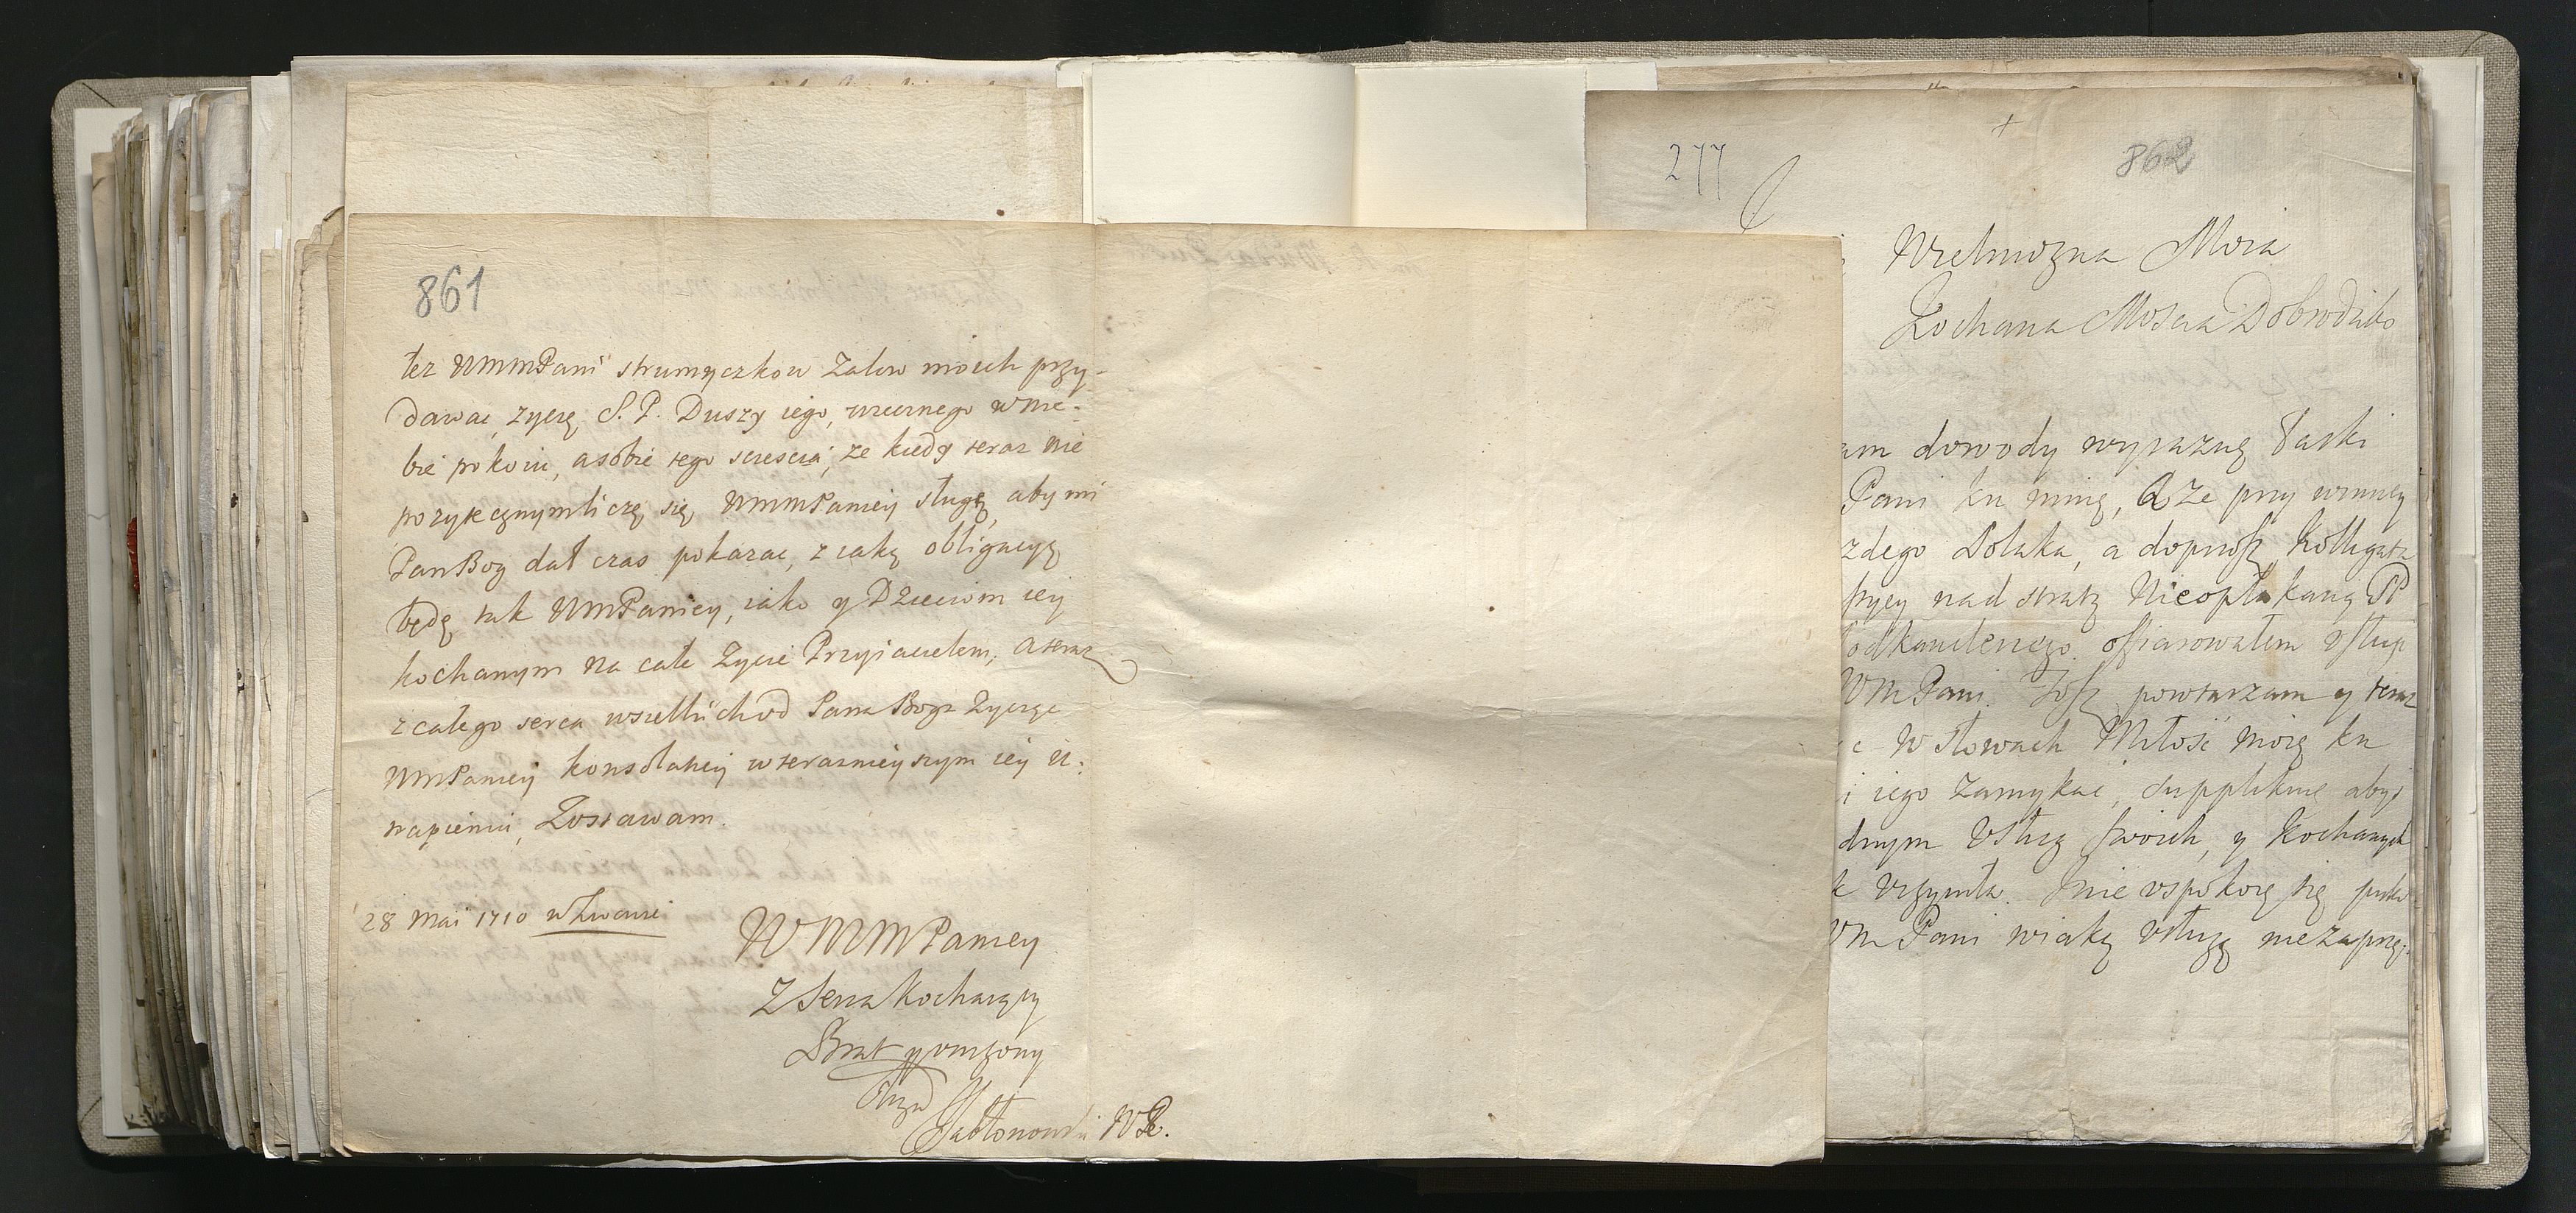 861
łez WMMPani strumyczkow żalow moich przy-
dawac, zyczę S. P. Duszy iego, wiecznego w nie-
bie pokoiu, a sobie tego sczescia, ze kiedy teraz nie
pozytecznym liczę się WMMPaniey sługą, aby mi
Pan Bog dał czas pokazac, z iaką obligacyą
będę tak WMPaniey, iako y Dzieciom iey
kochanym na całe Zycie Przyiacielem, a teraz
z całego serca wszelkich od Pana Boga Zyczę
WMPaniey konsolatiey w teraznieyszym iey u-
trapieniu, Zostawam.
28 Mai 1710
WMMPaniey
Z Serca Kochaiący
Brat y unizony
sługa
Jabłonowski WR.
277
862
Wielmozna Moia
Kochana Moscia Dobrodziko
am dowody wyrazną Łaski
Pani ku mnię, A ze przy
zdego Polaka, a doprosz Kolligata
nad stratą Nieopłakaną SP
Podkanclerzego offiarowałem Usługi
WM Pani. Tosz powtarzam y teraz
c w słowach Miłość moię ku
i iego zamykac, supplikuię abyś
dnym Usług swoich, y Kochanych
nie uspokoię się
WM Pani w iaką usługę nie zaprzę-